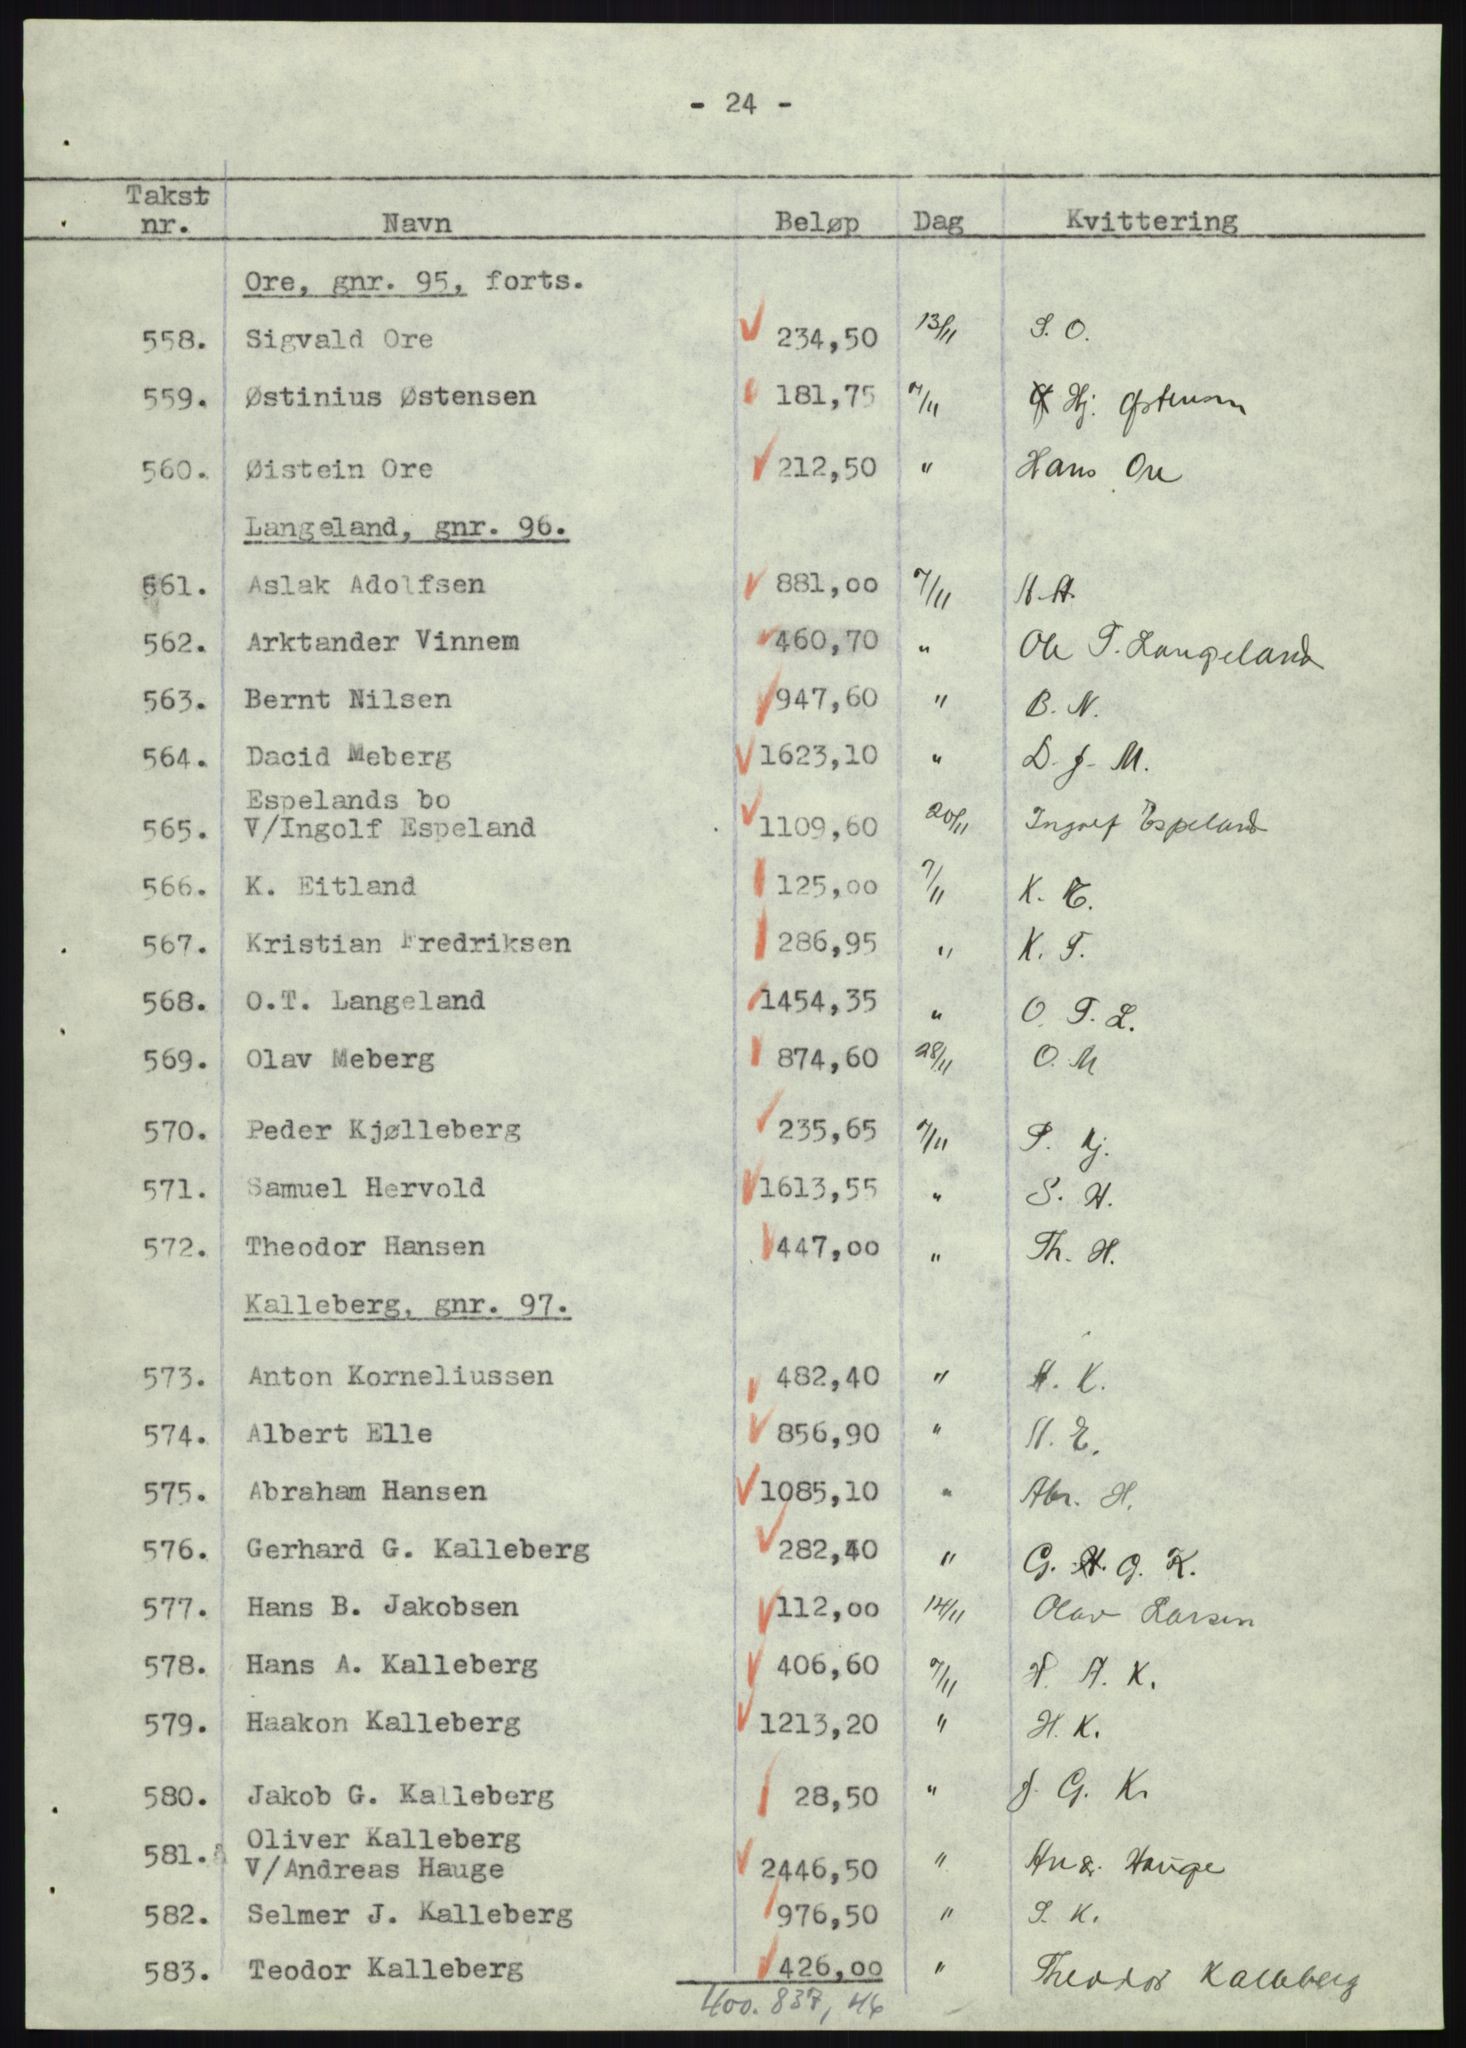 - 24 -
Takst
nr. Navn Beløp Dag Kvittering
Ore, gnr. 95, forts.
558. Sigvald Ore 234,50 13/11 S. O.
559. Østinius Østensen 181,75 7/11 Hj. Østensen
560. Øistein Ore 212,50 " Hans Ore
Langeland, gnr. 96.
561. Aslak Adolfsen 881,00 7/11 A. A.
562. Arktander Vinnem 460,70 " Ole T. Langeland
563. Bernt Nilsen 947,60 " B. N.
564. Dacid Meberg 1623,10 " D. J. M.
Espelands bo
565. V/Ingolf Espeland 1109,60 20/11 Ingolf Espeland
566. K. Eitland 125,00 7/11 K. E.
567. Kristian Fredriksen 286,95 " K. F.
568. O.T. Langeland 1454,35 " O. T. L.
569. Olav Meberg 874,60 28/11 O. M
570. Peder Kjølleberg 235,65 7/11 P. Kj.
571. Samuel Hervold 1613,55 " S. H.
572. Theodor Hansen 447,00 " Th. H.
Kalleberg, gnr. 97.
573. Anton Korneliussen 482,40 " A. K.
574. Albert Elle 856,90 " A. E.
575. Abraham Hansen 1085,10 " Abr. H.
576. Gerhard G. Kalleberg 282,40 " G. G. K.
577. Hans B. Jakobsen 112,00 14/11 Olav Larsen
578. Hans A. Kalleberg 406,60 7/11 H. A. K.
579. Haakon Kalleberg 1213,20 " H. K.
580. Jakob G. Kalleberg 28,50 " J. G. K.
Oliver Kalleberg
581. V/Andreas Hauge 2446,50 " And. Hauge
582. Selmer J. Kalleberg 976,50 " S. K.
583. Teodor Kalleberg 426,00 " Theodor Kalleberg
400.837,46